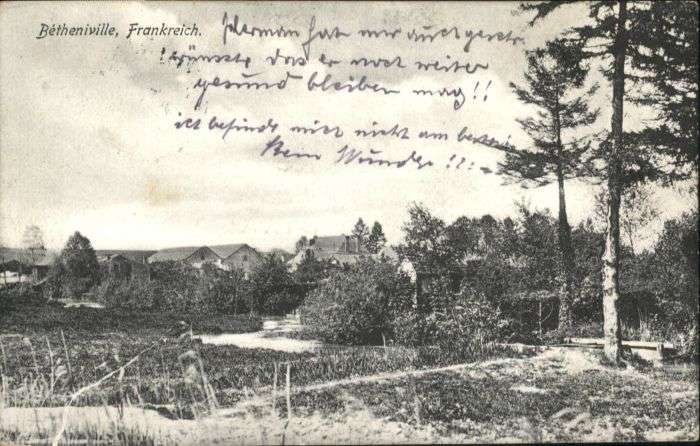 Bétheniville, Frankreich.
Herman hat mir auch geschr.
wünsche das er noch weiter
gesund bleiben mag!!
ich befinde mich nicht am besten
Kein Wunder!!